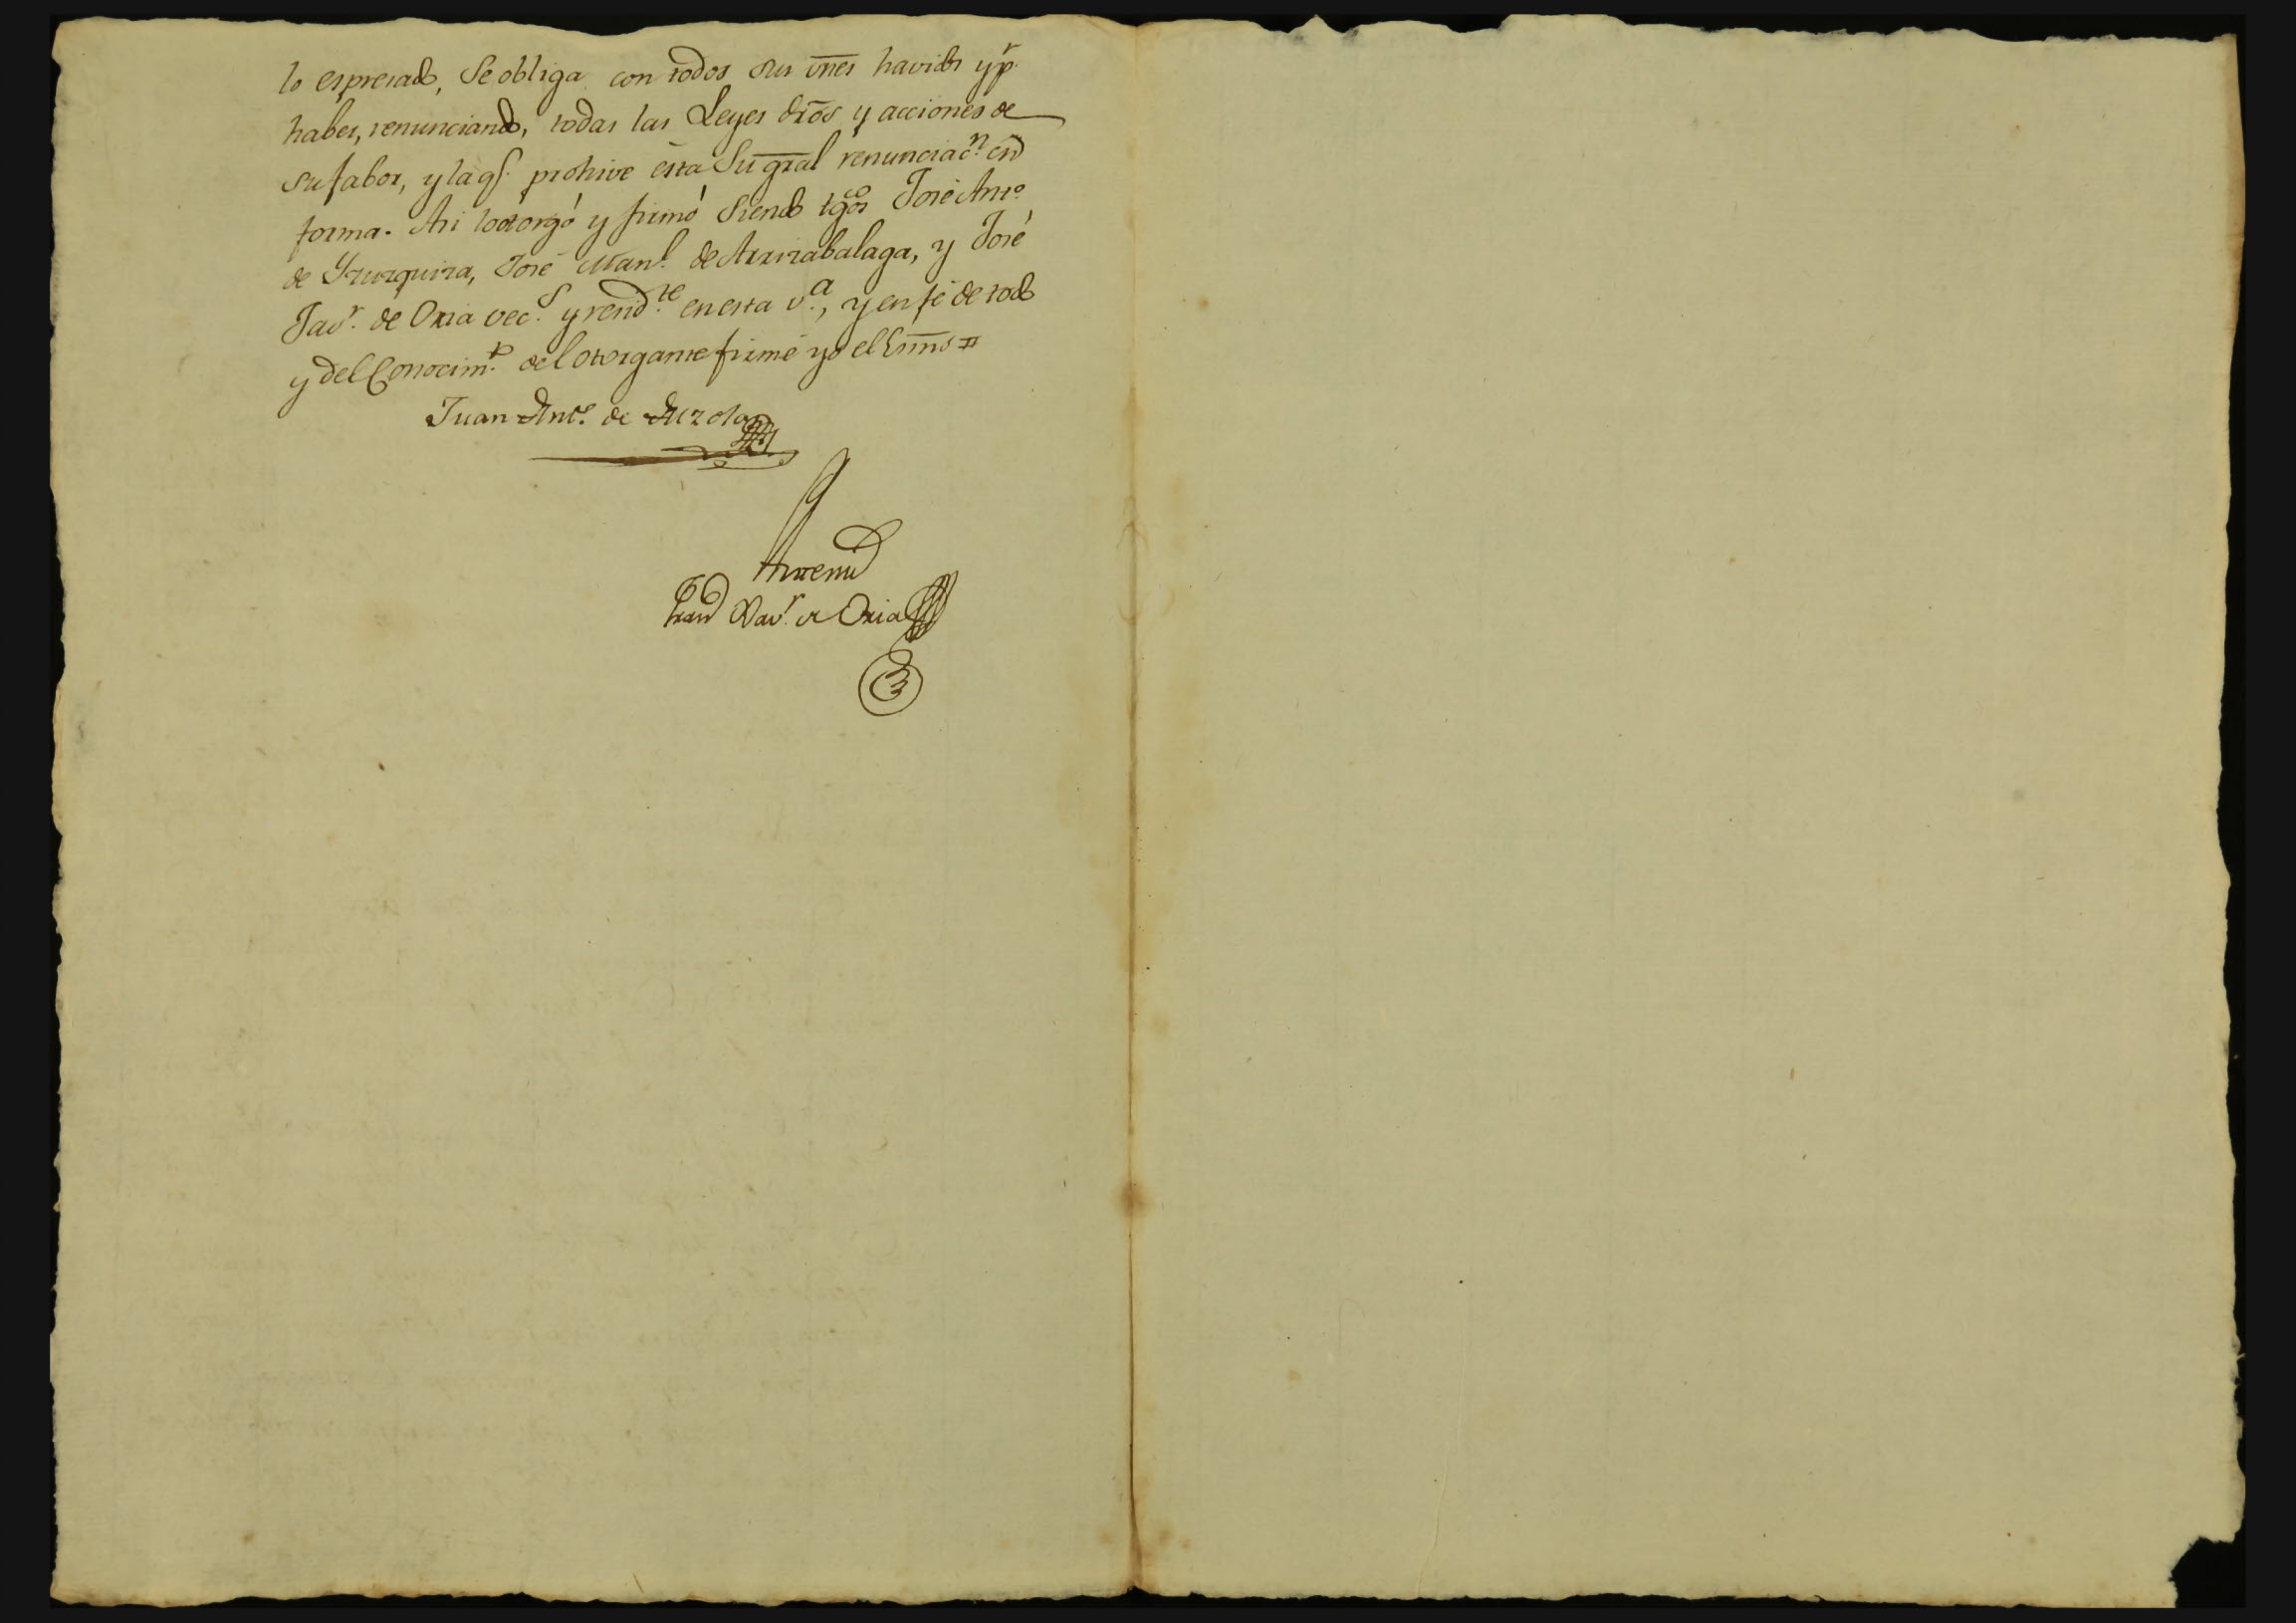 lo espresado, se obliga con todos sus vnes havidos y p.r
haber, renunciando, todas las Leyes dros y acciones de
su fabor, y la q.e prohive esta su gral renunciac.n en
forma. Asi lo otorgó y firmó siendo tgos José Ant.o
de Yrurquiza, José Man.l de Arrizabalaga, y José
Jav.r de Oria vec.s y resid.te en esta v.a, y en fé de todo
y del Conocim.to del otorgante firmé yo el Essno =
Juan Ant.o de Alzola
Antemi
Fran.co Xav.r de Oria